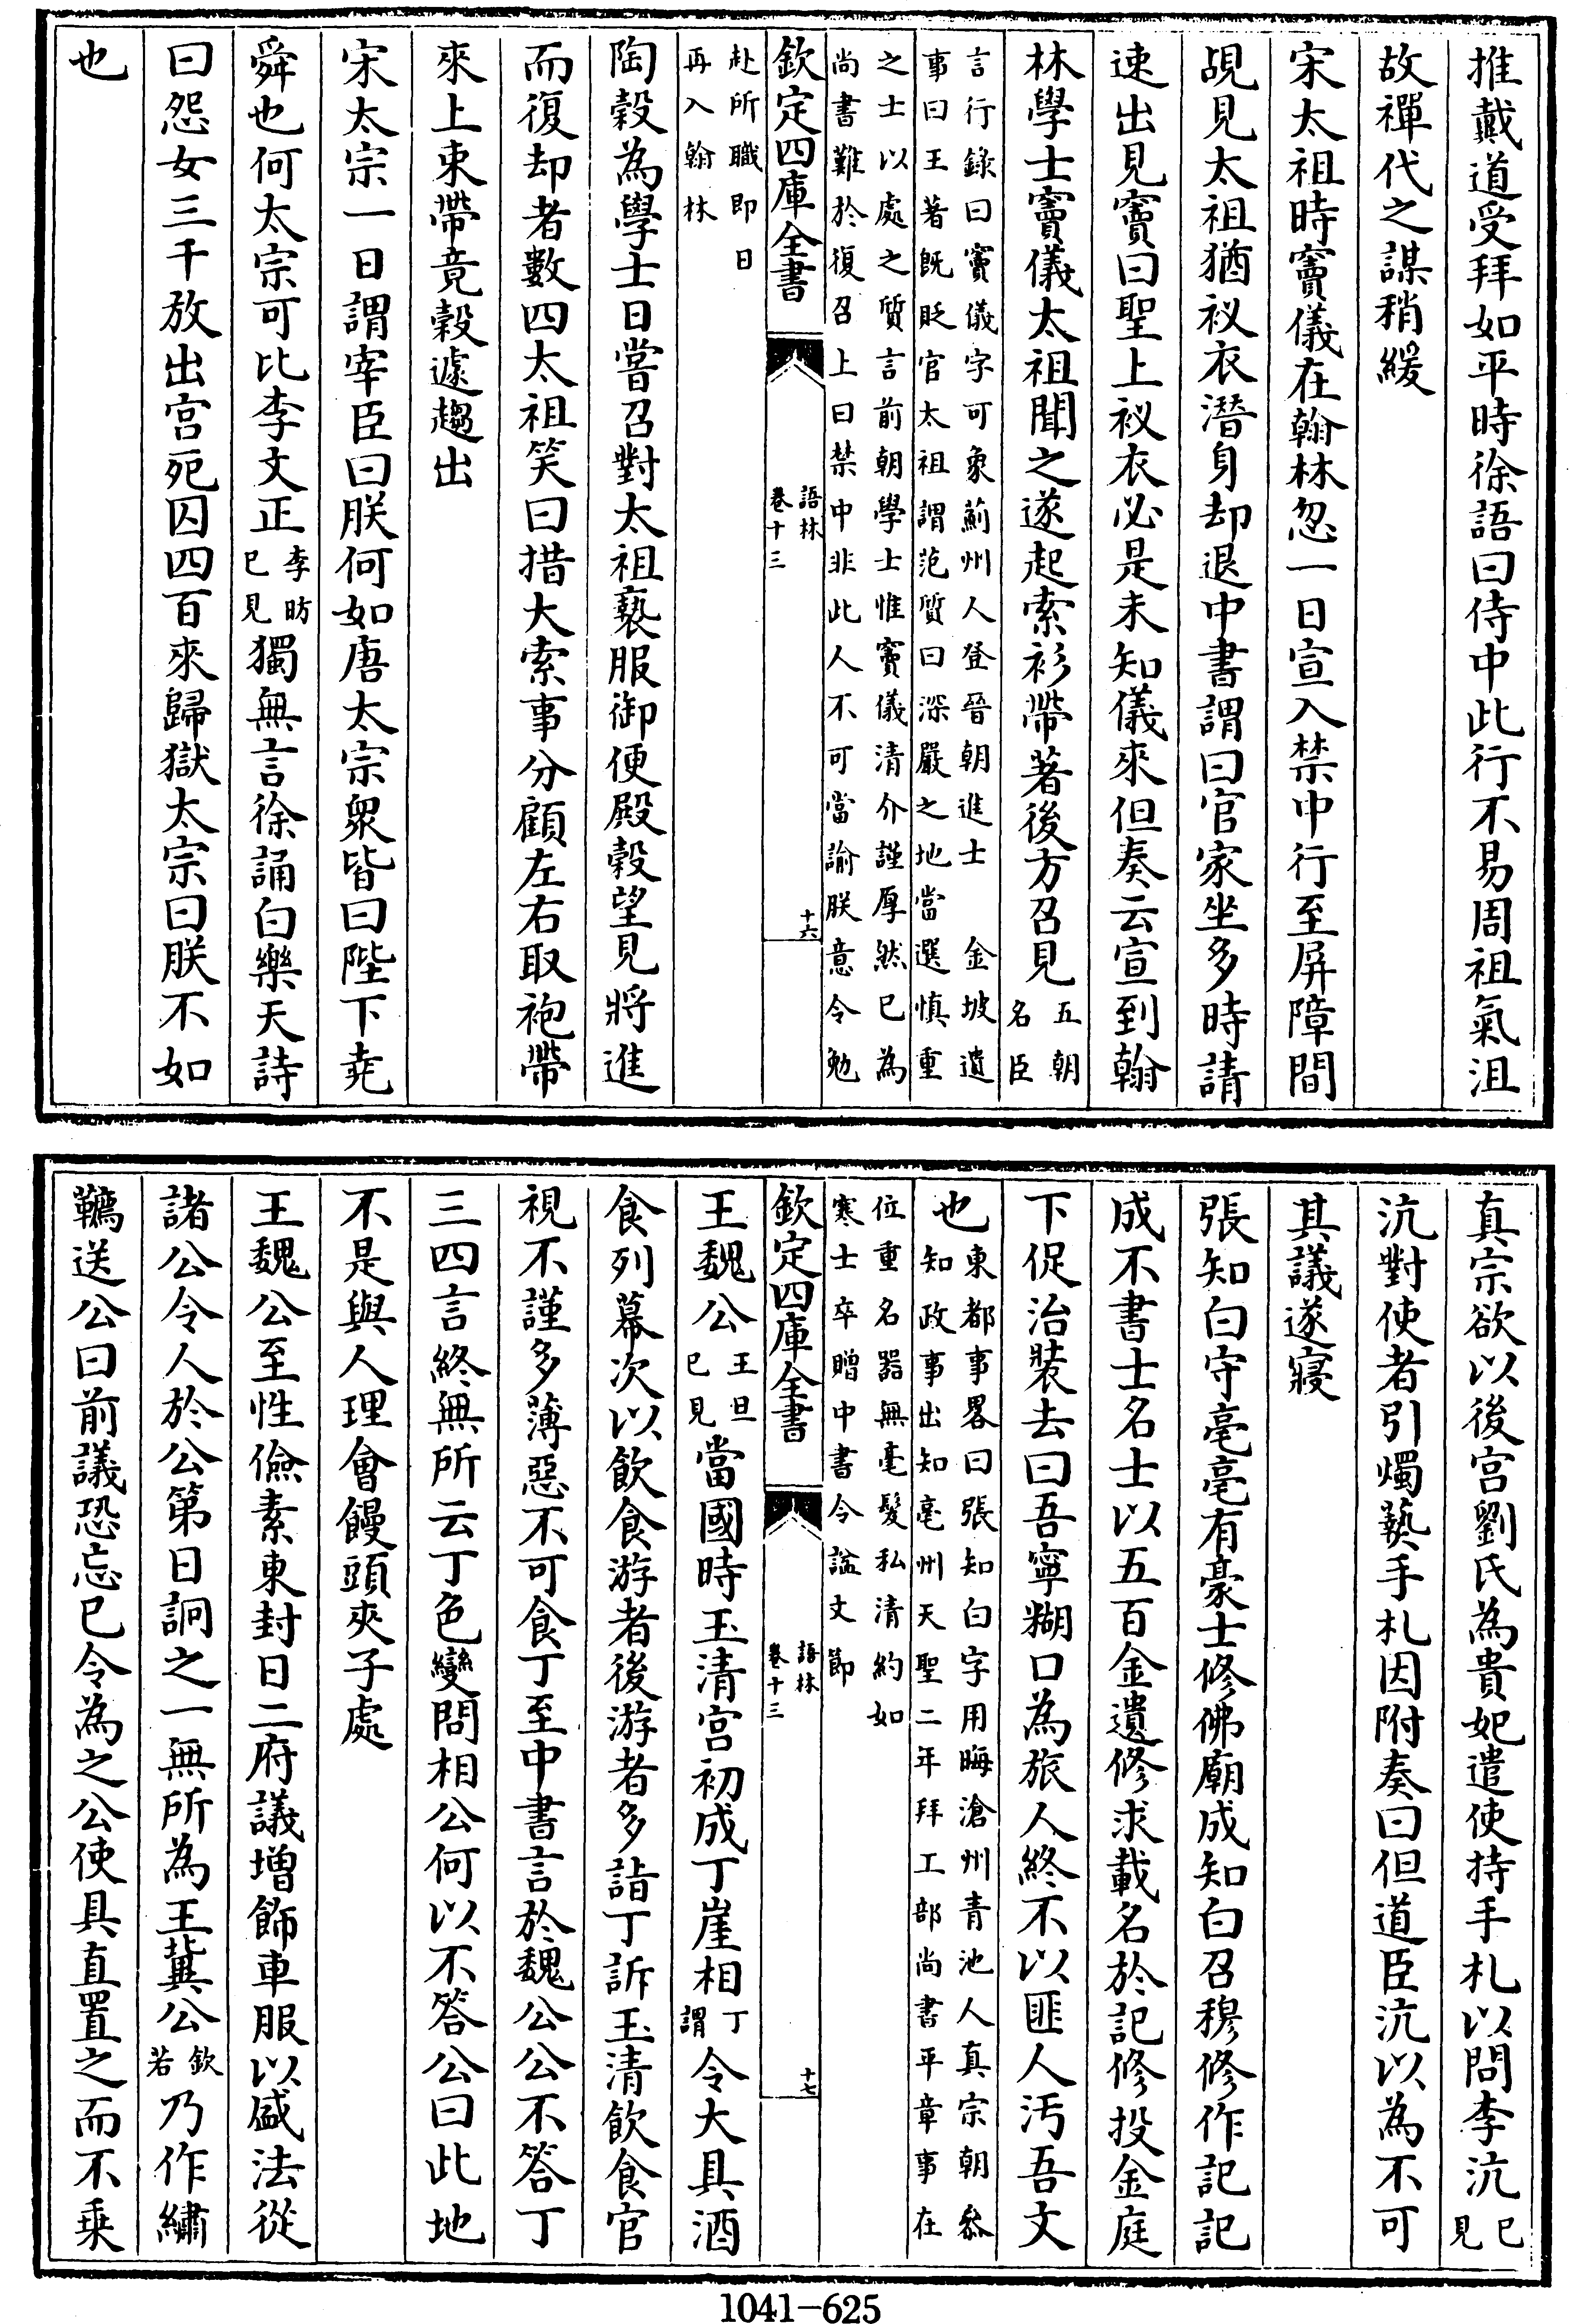 推戴道受拜如平時徐語曰侍中此行不易周祖氣沮
故禪代之謀稍緩
宋太祖時竇儀在翰林忽一日宣入禁中行至屏障間
覘見太祖猶衩衣潛身却退中書謂曰官家坐多時請
速出見竇曰聖上衩衣必是未知儀來但奏云宣到翰
林學士竇儀太祖聞之遂起索衫帶著後方召見五朝
名臣
言行錄曰竇儀字可象薊州人登晉朝進士 金坡遺
事曰王著既貶官太祖謂范質曰深嚴之地當選慎重
之士以處之質言前朝學士惟竇儀清介謹厚然已為
尚書難於復召上曰禁中非此人不可當諭朕意令勉
欽定四庫全書
語林
卷十三
十六
赴所職即日
再入翰林
陶穀為學士日嘗召對太祖褻服御便殿穀望見將進
而復却者數四太祖笑曰措大索事分顧左右取袍帶
來上束帶竟穀遽趨出
宋太宗一日謂宰臣曰朕何如唐太宗衆皆曰陛下堯
舜也何太宗可比李文正李昉
已見獨無言徐誦白樂天詩
曰怨女三千放出宫死囚四百來歸獄太宗曰朕不如
也
真宗欲以後宫劉氏為貴妃遣使持手札以問李沆已
見
沆對使者引燭爇手札因附奏曰但道臣沆以為不可
其議遂寢
張知白守亳亳有豪士修佛廟成知白召穆修作記記
成不書士名士以五百金遺修求載名於記修投金庭
下促治裝去曰吾寧糊口為旅人終不以匪人汚吾文
也東都事畧曰張知白字用晦滄州青池人真宗朝叅
知政事出知亳州天聖二年拜工部尚書平章事在
位重名器無毫髮私清約如
寒士卒贈中書令諡文節
欽定四庫全書
語林
卷十三
十七
王魏公王旦
已見當國時玉清宫初成丁崖相丁
謂令大具酒
食列幕次以飲食游者後游者多詣丁訴玉清飲食官
視不謹多薄惡不可食丁至中書言於魏公公不答丁
三四言終無所云丁色變問相公何以不答公曰此地
不是與人理會饅頭夾子處
王魏公至性儉素東封日二府議增飾車服以盛法從
諸公令人於公第日詗之一無所為王冀公欽
若乃作繡
韉送公曰前議恐忘已令為之公使具直置之而不乗
1041-625